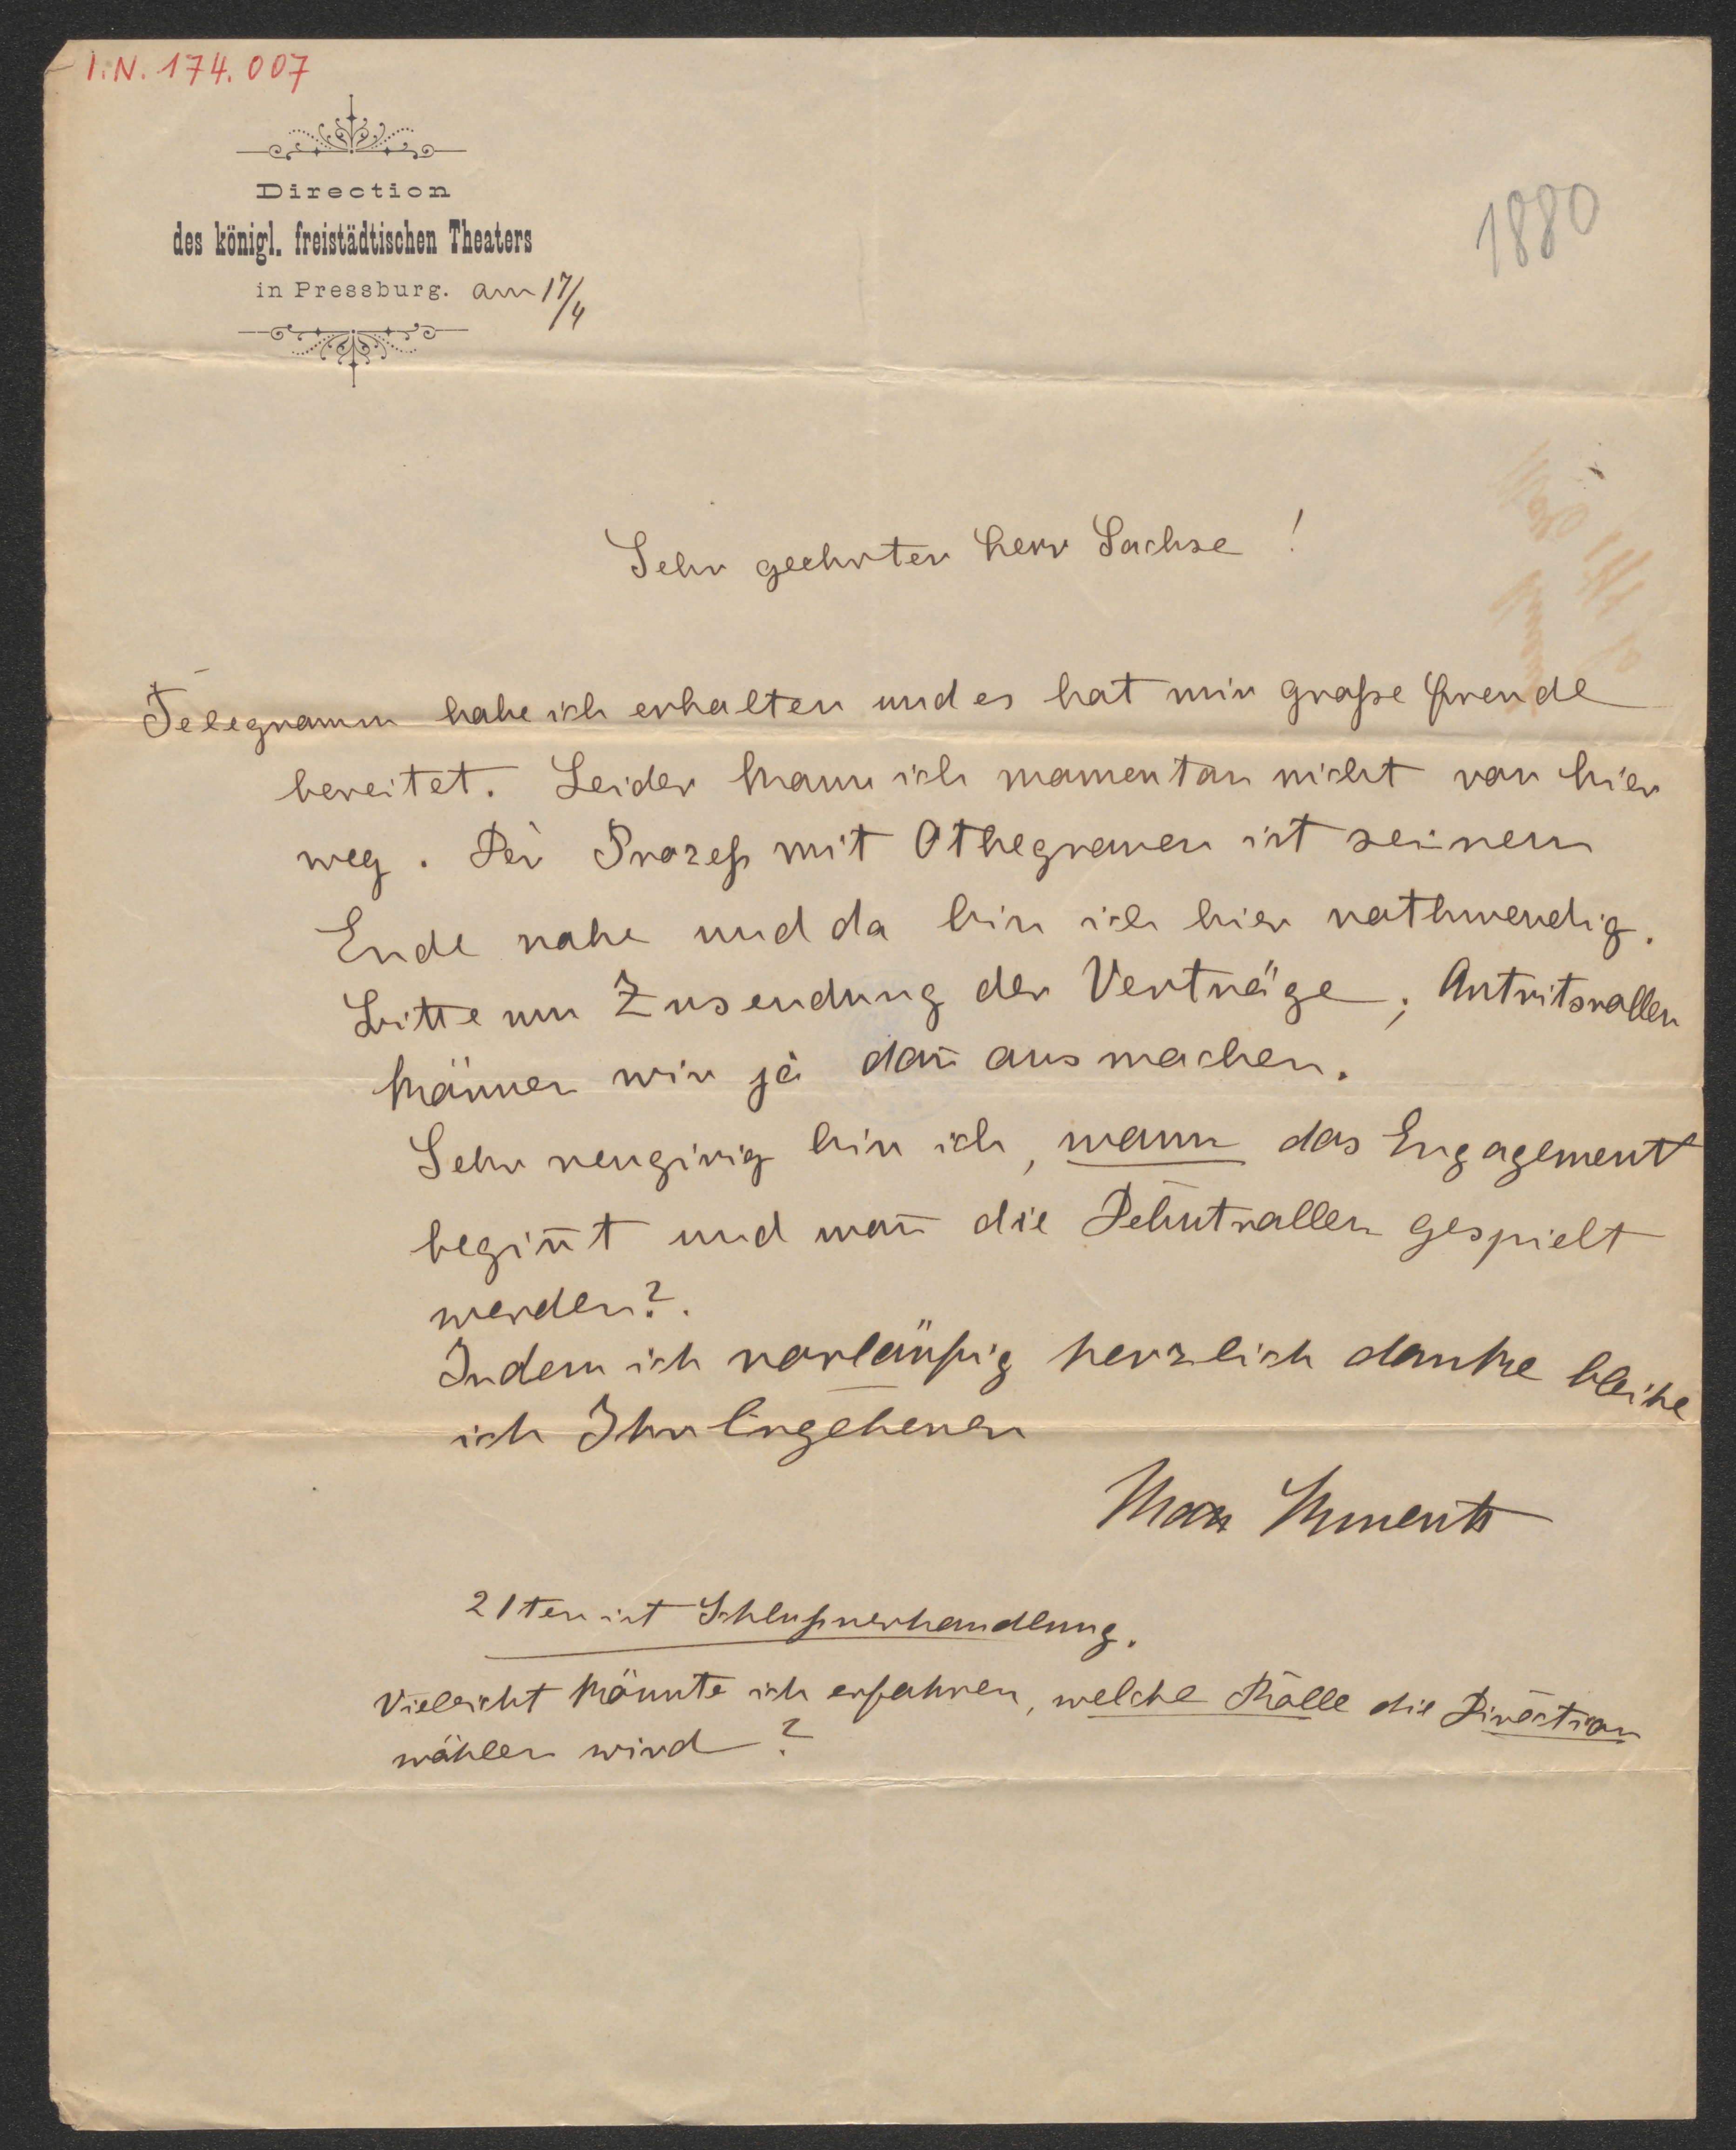 I.N. 174.007
Direction
des königl. freistädtischen Theaters
in Pressburg. am 17/4
1880
Sehr geehrter Herr Sachse!
Telegramm habe ich erhalten und es hat mir große Freude
bereitet. Leider kann ich momentan nicht von hier
weg. Der Prozeß mit Othegraven ist seinem
Ende nahe und da bin ich hier nothwendig.
Bitte um Zusendung der Verträge; Antritsrollen
können wir ja dan̄ ausmachen.
Sehr neugirig bin ich, wann das Engagement
begin̄t und wan̄ die Debutrollen gespielt
werden?.
Indem ich vorläufig herzlich danke bleibe
ich Ihr Ergebener
Max
21ten ist Schlußverhandlung.
Vieleicht könnte ich erfahren, welche Rolle die Direction
wählen wird?